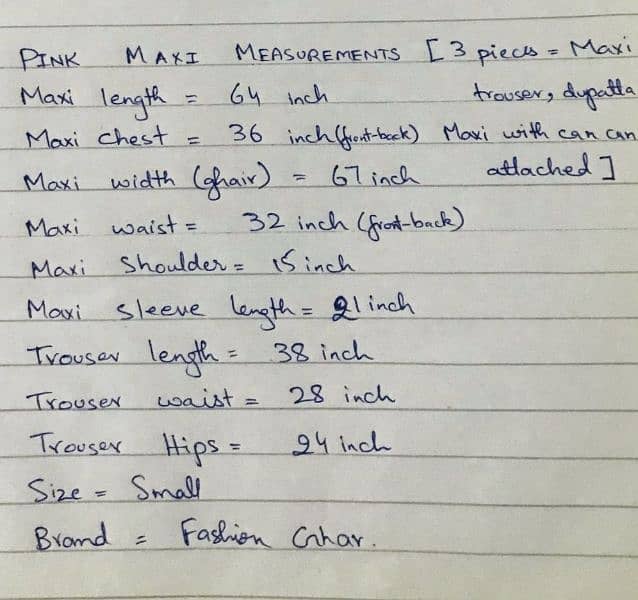 PINK MAXI MEASUREMENTS [3 pieces = Maxi
Maxi length = 64 inch trouser, dupatta
Maxi chest = 36 inch (front-back) Maxi with can can
Maxi width (ghair) = 67 inch attached]
Maxi waist = 32 inch (front-back)
Maxi Shoulder = 15 inch
Maxi Sleeve length = 21 inch
Trouser length = 38 inch
Trouser waist = 28 inch
Trouser Hips = 24 inch
Size = Small
Brand = Fashion Ghar.